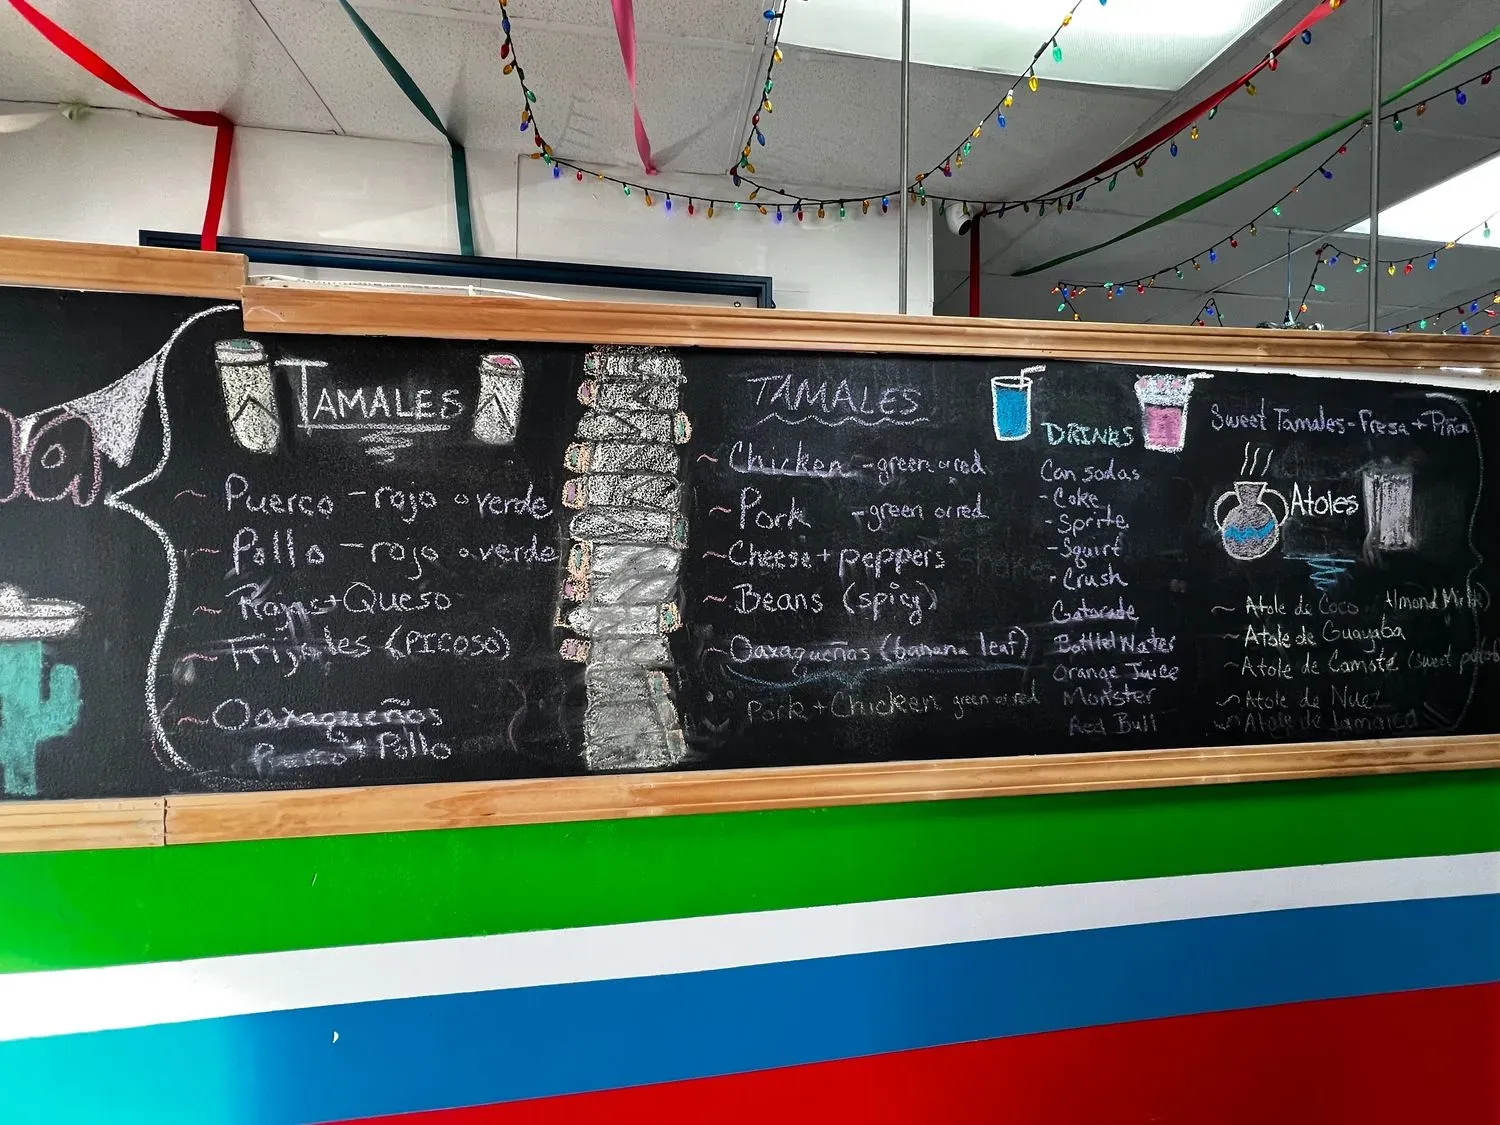 TAMALES
~ Puerco - rojo o verde
~ Pollo - rojo o verde
~ Rajas + Queso
~ Frijoles (PICOSO)
~ Oaxaqueños
Puerco + Pollo
TAMALES
~ Chicken - green or red
~ Pork - green or red
~ Cheese + peppers
~ Beans (spicy)
~ Oaxaqueñas (banana leaf)
Pork + Chicken green or red
DRINKS
Can sodas
- Coke
- Sprite
- Squirt
- Crush
Gatorade
Bottle Water
Orange Juice
Monster
Red Bull
Sweet Tamales - Fresa + Piña
Atoles
~ Atole de Coco (Almond Milk)
~ Atole de Guayaba
~ Atole de Camote (sweet
~ Atole de Nuez
~ Atole de Jamaica